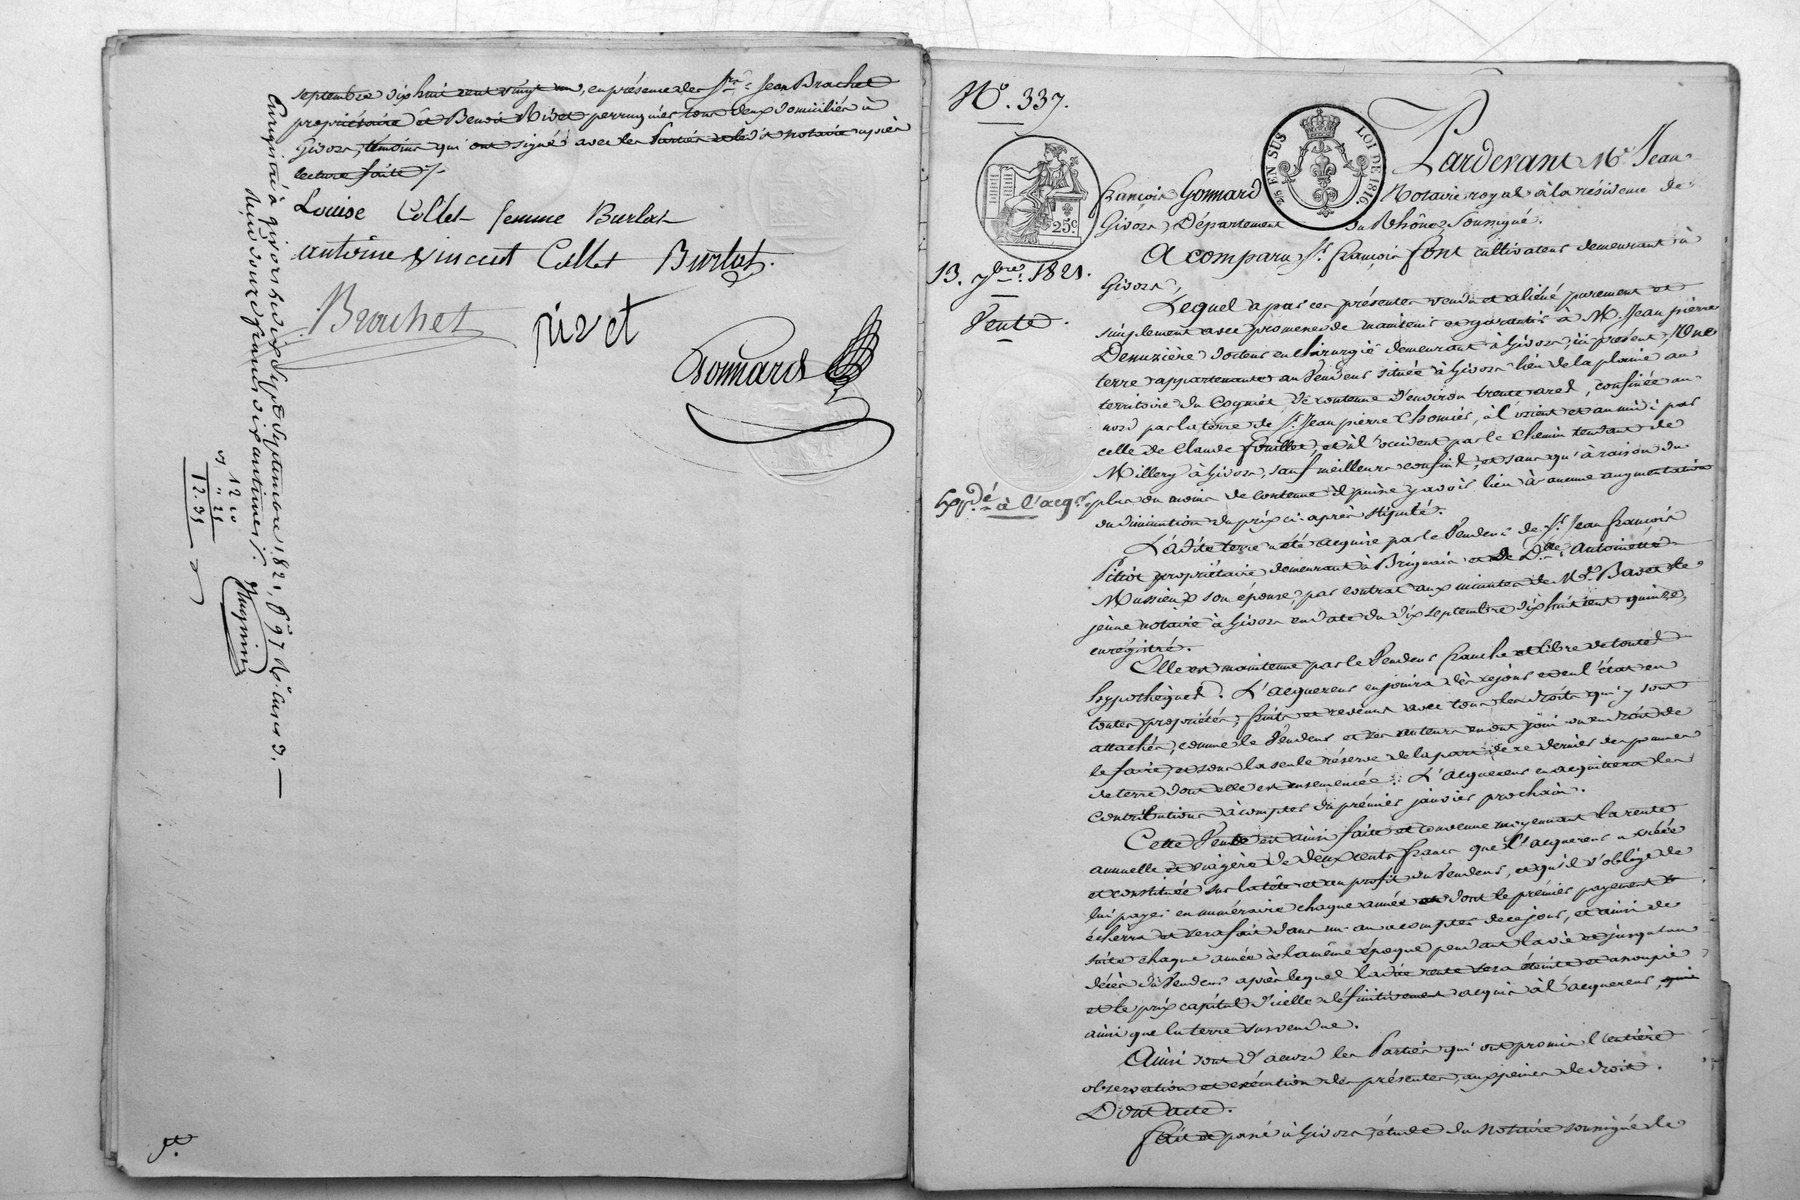 septembre dix huit cent vingt un, en présence des Srs. Jean Brachet
propriétaire et Benoit Rivet perruquier tous deux domiciliés à
Givors, témoins qui ont signé avec les Parties et le dit notaire après
lecture faite /.
Louise Collet femme Burlat
antoine vincent Collet Burlat.
Brachet
rivet
Gonnard
Enregistré à Givors le dix Sept Septembre 1821, f° 97 V° Cases 3.
Reçu douze francs dix centimes /.
12 20
" " 21
12.31
N°. 337.
2s EN SUS
LOI DE 1816.
25c.
13. 7bre. 1821.
Vente.
Expdé à l'acqr.
Pardevant Me Jean
françois Gonnard Notaire royal à la résidence de
Givors, Département du Rhône, Soussigné.
A comparu Sr. françois font cultivateur demeurant à
Givors,
Lequel a par ces présentes vendu et aliéné purement et
simplement avec promesse de maintenir et garantir à M. Jean pierre
Denuzière docteur en chirurgie demeurant à Givors, ici présent, Une
terre appartenante au Vendeur située à Givors lieu de la plaine au
territoire du Cognet, de contenue d'environ trente ares, confinée au
nord par la terre de Sr. Jean pierre Chomier, à l'orient et au midi par
celle de Claude fouillet, et à l'occident par le Chemin tendant de
Millery à Givors, sauf meilleurs confins, et sans qu'à raison du
plus ou moins de contenue il puisse y avoir lieu à aucune augmentation
ou diminution du prix ci-après stipulé.
Ladite terre a été acquise par le Vendeur de Sr. Jean françois
Pitiot propriétaire demeurant à Brignais et de Dme. Antoinette
Mussieux son épouse, par contrat aux minutes de Me. Bavet le
jeune notaire à Givors en date du dix septembre dix huit cent quinze,
enrégistré.
Elle est maintenue par le Vendeur franche et libre de toutes
hypothèques. L'acquereur en jouira dès cejour et en l'état en
toutes propriétés, fruits et revenus avec tous les droits qui y sont
attachés, comme le Vendeur et ses auteurs en ont joui ou eu droit de
le faire, et sous la seule réserve de la part de ce dernier des pommes
de terre dont elle est ensemencée. L'acquereur en acquittera les
contributions à compter du prémier janvier prochain.
Cette Vente est ainsi faite et convenue moyennant la rente
annuelle et viagère de deux cents francs que l'acquereur a créée
et constituée sur la tête et au profit du Vendeur, et qu'il s'oblige de
lui payer en numéraire chaque année dont le prémier payement
écherra et sera fait dans un an à compter de cejour, et ainsi de
suite chaque année à la même époque pendant la vie et jusqu'au
décès du Vendeur après lequel ladite rente sera éteinte et assoupie
et le prix capital d'icelle définitivement acquis à l'acquereur,
ainsi que la terre susvendue.
Ainsi sont d'accord les Parties qui ont promis l'entière
observation et exécution des présentes, aux peines de droit.
Dont acte.
fait et passé à Givors, étude du notaire soussigné le